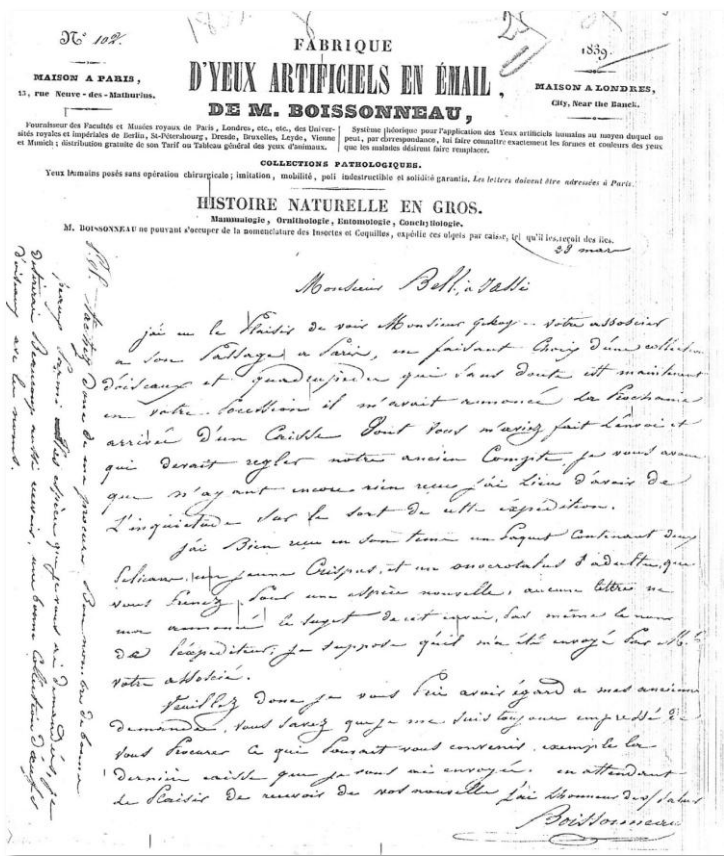 N° 102.
1839
FABRIQUE
D'YEUX ARTIFICIELS EN ÉMAIL,
DE M. BOISSONNEAU,
MAISON A PARIS,
rue Neuve-des-Mathurins.
MAISON A LONDRES,
City, Near the Banck.
Fournisseur des Facultés et Musées royaux de Paris, Londres, etc., etc., des Univer-
sités royales et impériales de Berlin, St-Pétersbourg, Dresde, Bruxelles, Leyde, Vienne
et Munich; distribution gratuite de son Tarif ou Tableau général des yeux d'animaux.
Système théorique pour l'application des Yeux artificiels humains au moyen duquel on
peut, par correspondance, lui faire connaître exactement les formes et couleurs des yeux
que les malades désirent faire remplacer.
COLLECTIONS PATHOLOGIQUES.
Yeux humains posés sans opération chirurgicale; imitation, mobilité, poli indestructible et solidité garantis. Les lettres doivent être adressées à Paris.
HISTOIRE NATURELLE EN GROS.
Mammalogie, Ornithologie, Entomologie, Conchyliologie.
M. BOISSONNEAU ne pouvant s'occuper de la nomenclature des Insectes et Coquilles, expédie ces objets par caisse, tel qu'il les reçoit des îles.
28 mars
Monsieur Bell, à
j'ai eu le Plaisir de voir Monsieur votre associer
a son Passage a Paris, en faisant Choix d'une collection
d'oiseaux et quadrupedes qui sans doute est maintenant
en votre Possession il m'avait annoncé la Prochaine
arrivée d'un Caisse dont vous m'aviez fait L'envoi et
qui devait regler notre ancien Compte, je vous avoue
que n'ayant encore rien reçu j'ai Lieu d'avoir de
L'inquietude sur le sort de cette expédition.
j'ai Bien reçu en son tems un Paquet Contenant deux
Pelicans, un jeune Crispus, et un onocrotalus adulte, que
vous Prenez Pour une espèce nouvelle, aucune lettre ne
m'a annoncé le sujet de cet envoi, Pas même le nom
de l'expediteur, je suppose qu'il m'a été envoyé Par
votre associé.
Veuillez donc je vous Prie avoir égard a mes anciennes
demandes, vous savez que je me suis toujours empressé de
vous Procurer ce qui Pouvait vous convenir, exemple la
dernière caisse que je vous ai envoyée. en attendant
le Plaisir de recevoir de vos nouvelles j'ai L'honneur de saluer
Boissonneau
tachez donc de me procurer Bon nombre de bonnes
Parmi les espèces que je vous ai demandées, je
désirerai Beaucoup aussi recevoir, une bonne Collection d'œufs
d'oiseaux avec les noms.